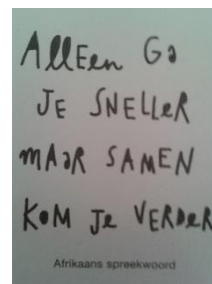 Alleen Ga
JE SNELLER
MAAR SAMEN
KOM Je VERDER
Afrikaans spreekwoord